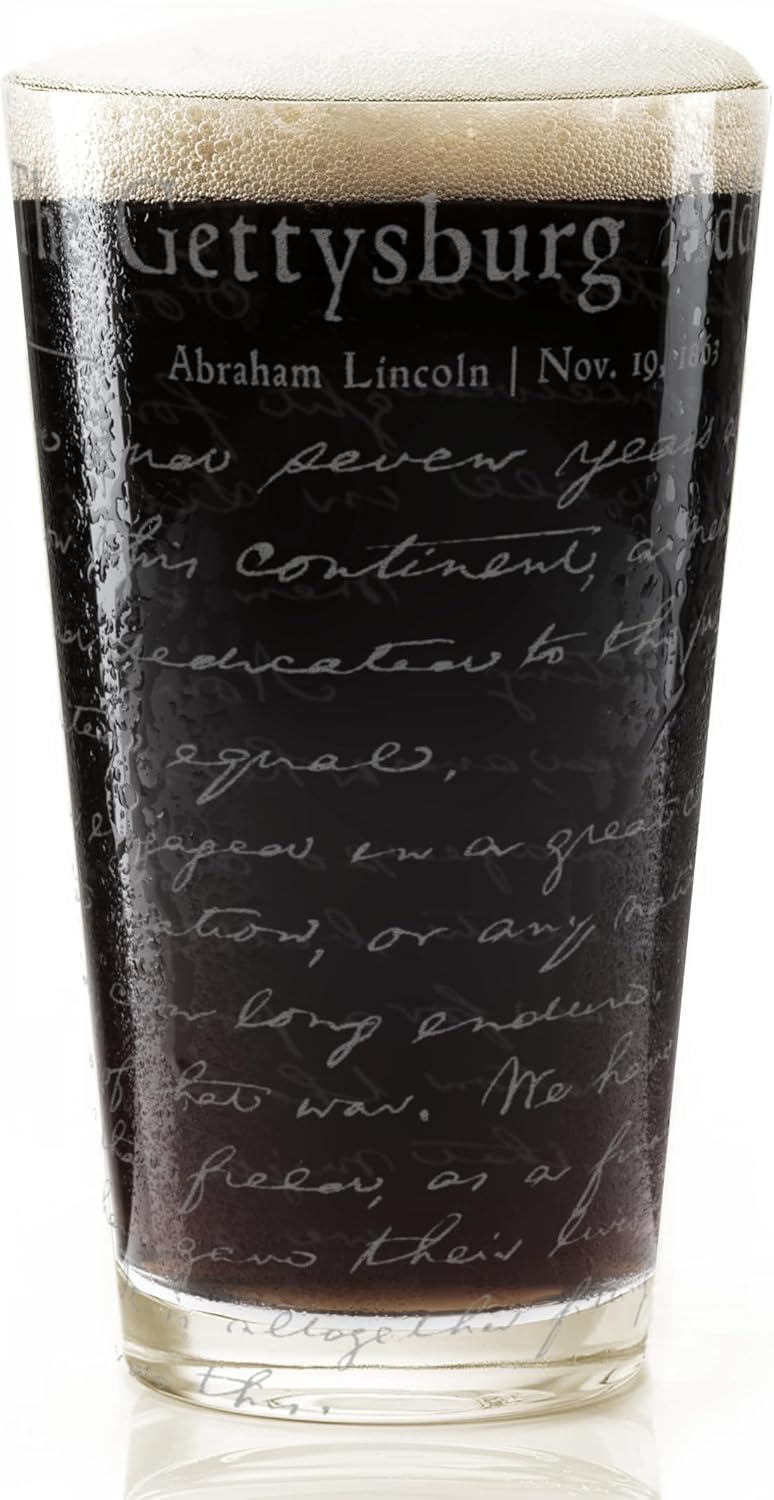 The Gettysburg Add
Abraham Lincoln | Nov. 19, 1863
and seven years
this continent, a
dedicated to the
equal.
engaged in a great
nation, or any
can long endure.
of that war. We have
field, as a
gave their lives
is altogether fitting
this.